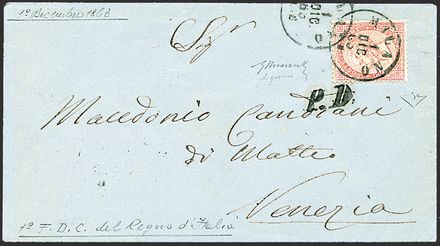 1º dicembre 1863
MILANO
1
DIC.
63
P.D.
Macedonio Candiani
di Matteo
Venezia
1º F.D.C. del Regno d'Italia